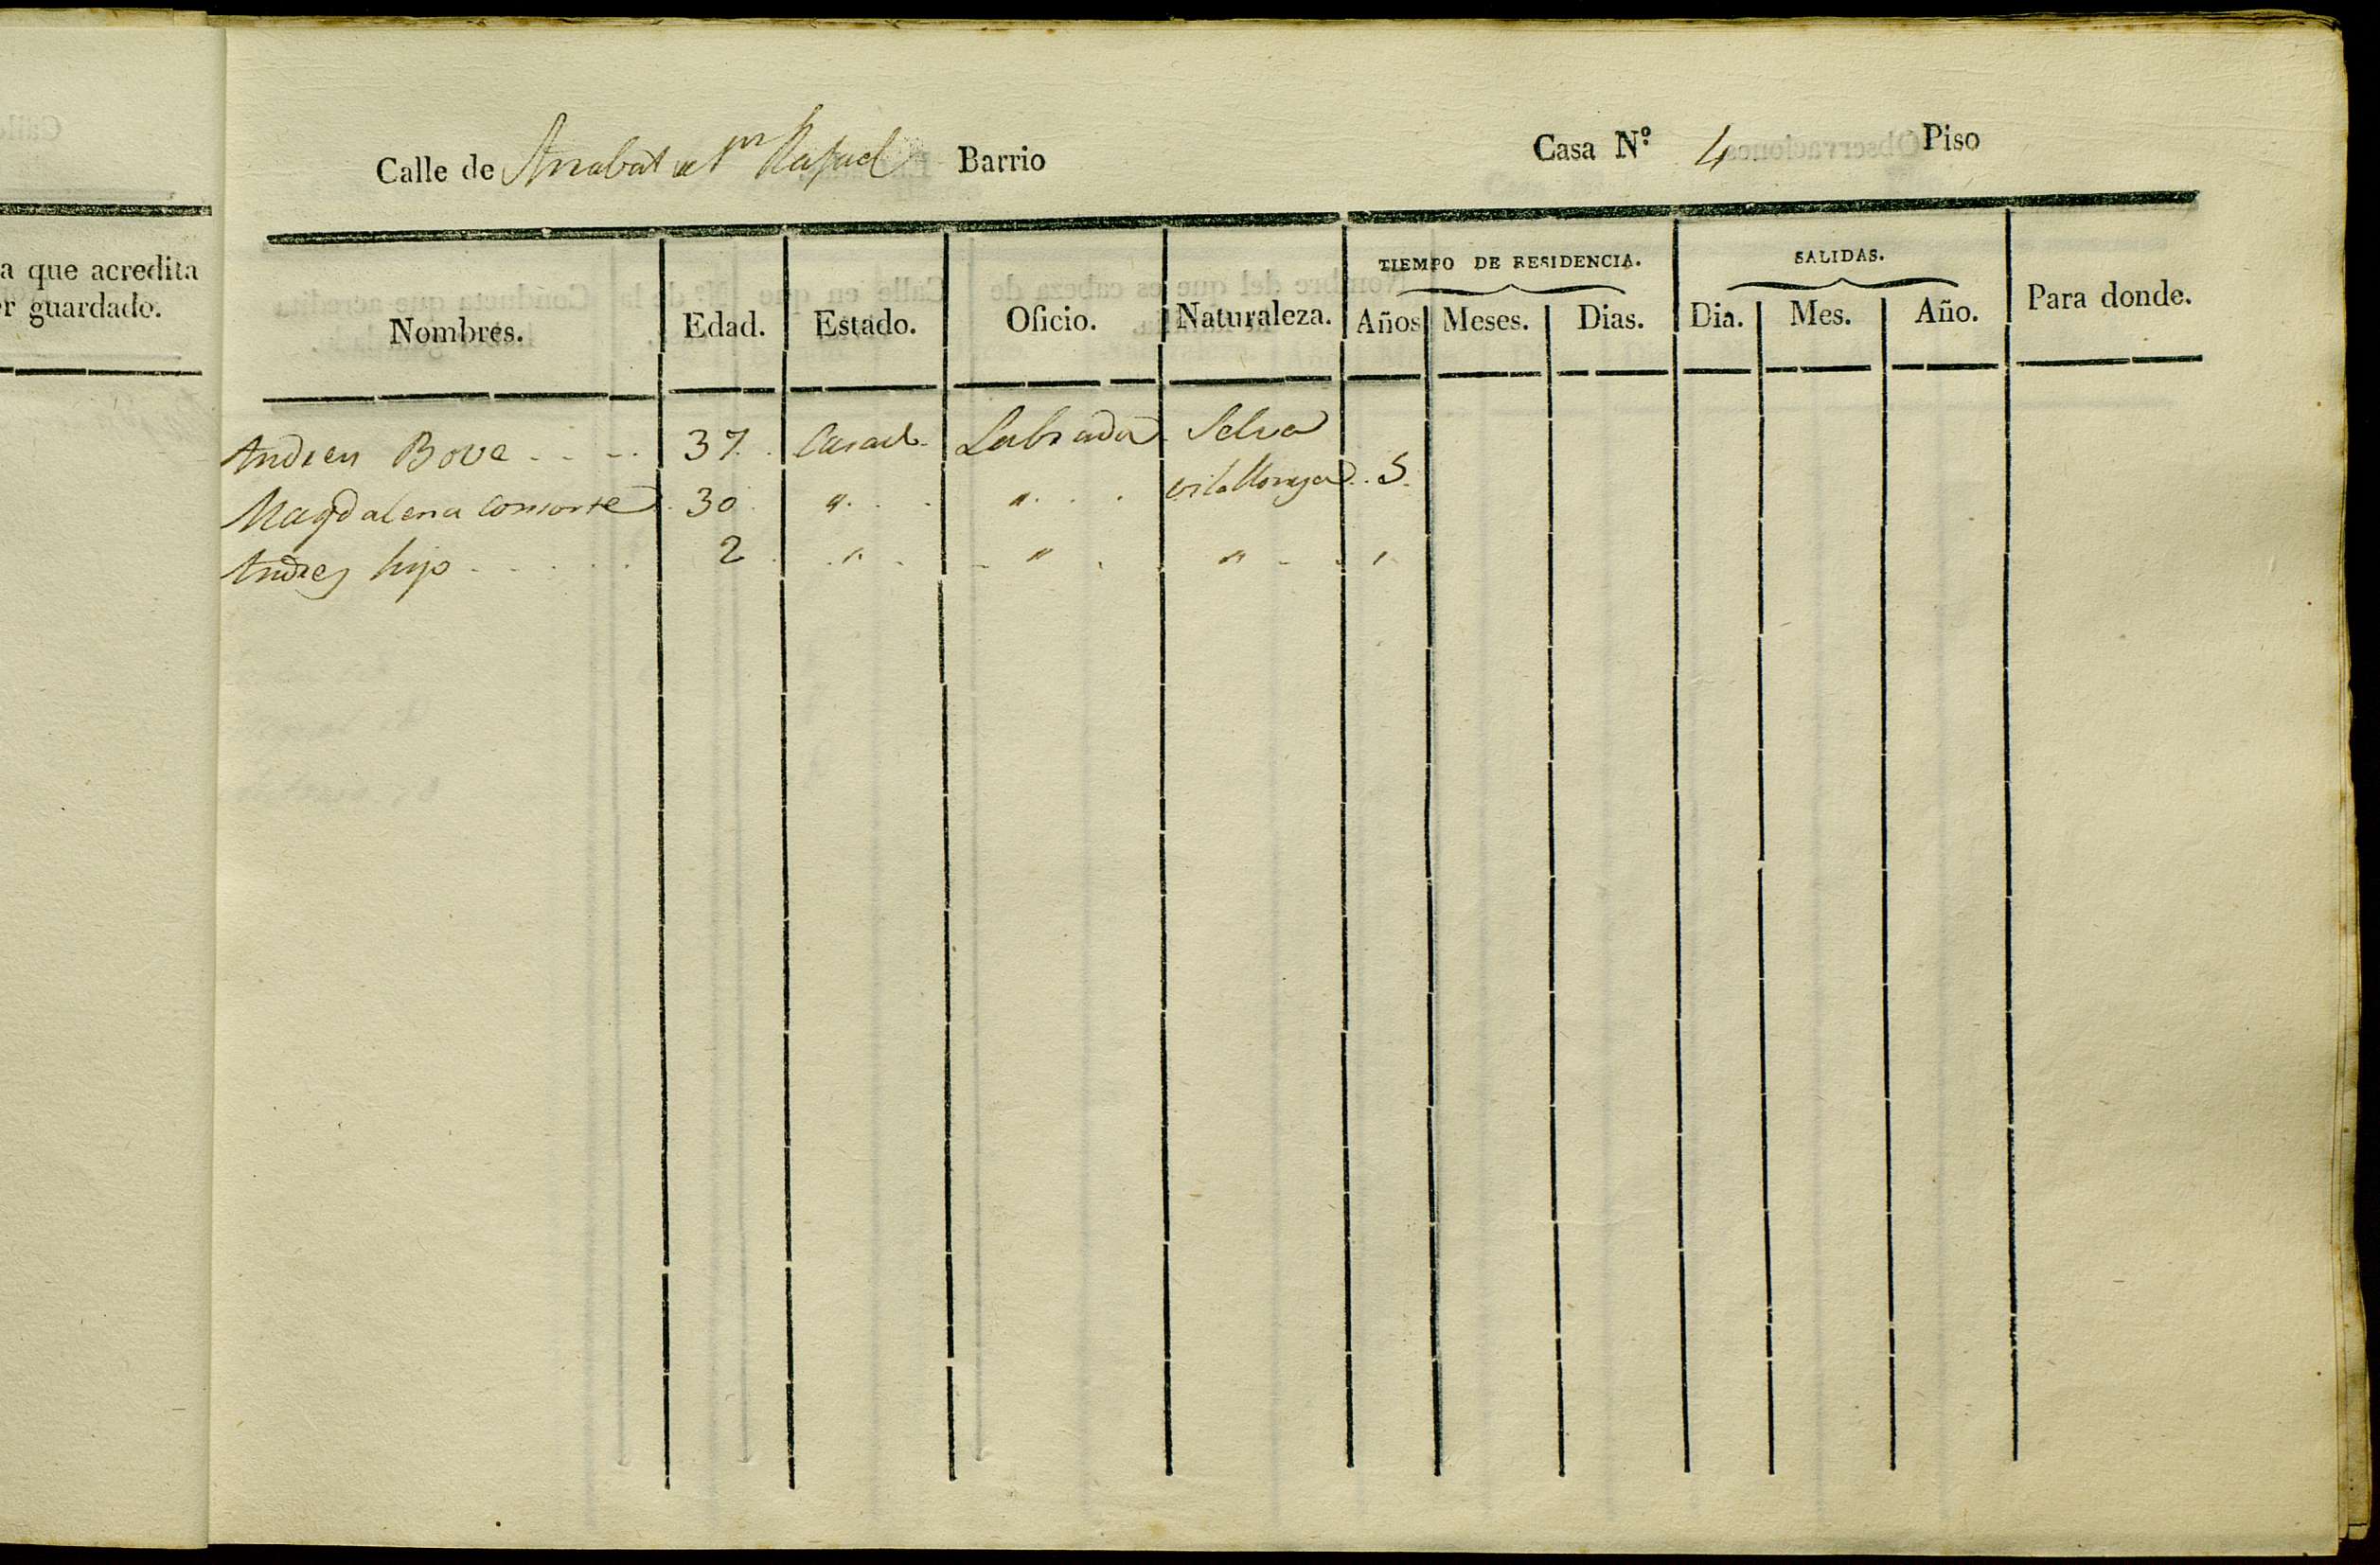 a que acredita
er guardado.
Calle de Arrabal de Sn Rafael Barrio Casa N.º 4 Piso
TIEMPO DE RESIDENCIA. SALIDAS.
Nombres. Edad. Estado. Oficio. Naturaleza. Años Meses. Dias. Dia. Mes. Año. Para donde.
Andreu Bove 37. Casad. Labrador Selva
Magdalena consorte 30 " " vilallonga 5.
Andres hijo 2 " " " "